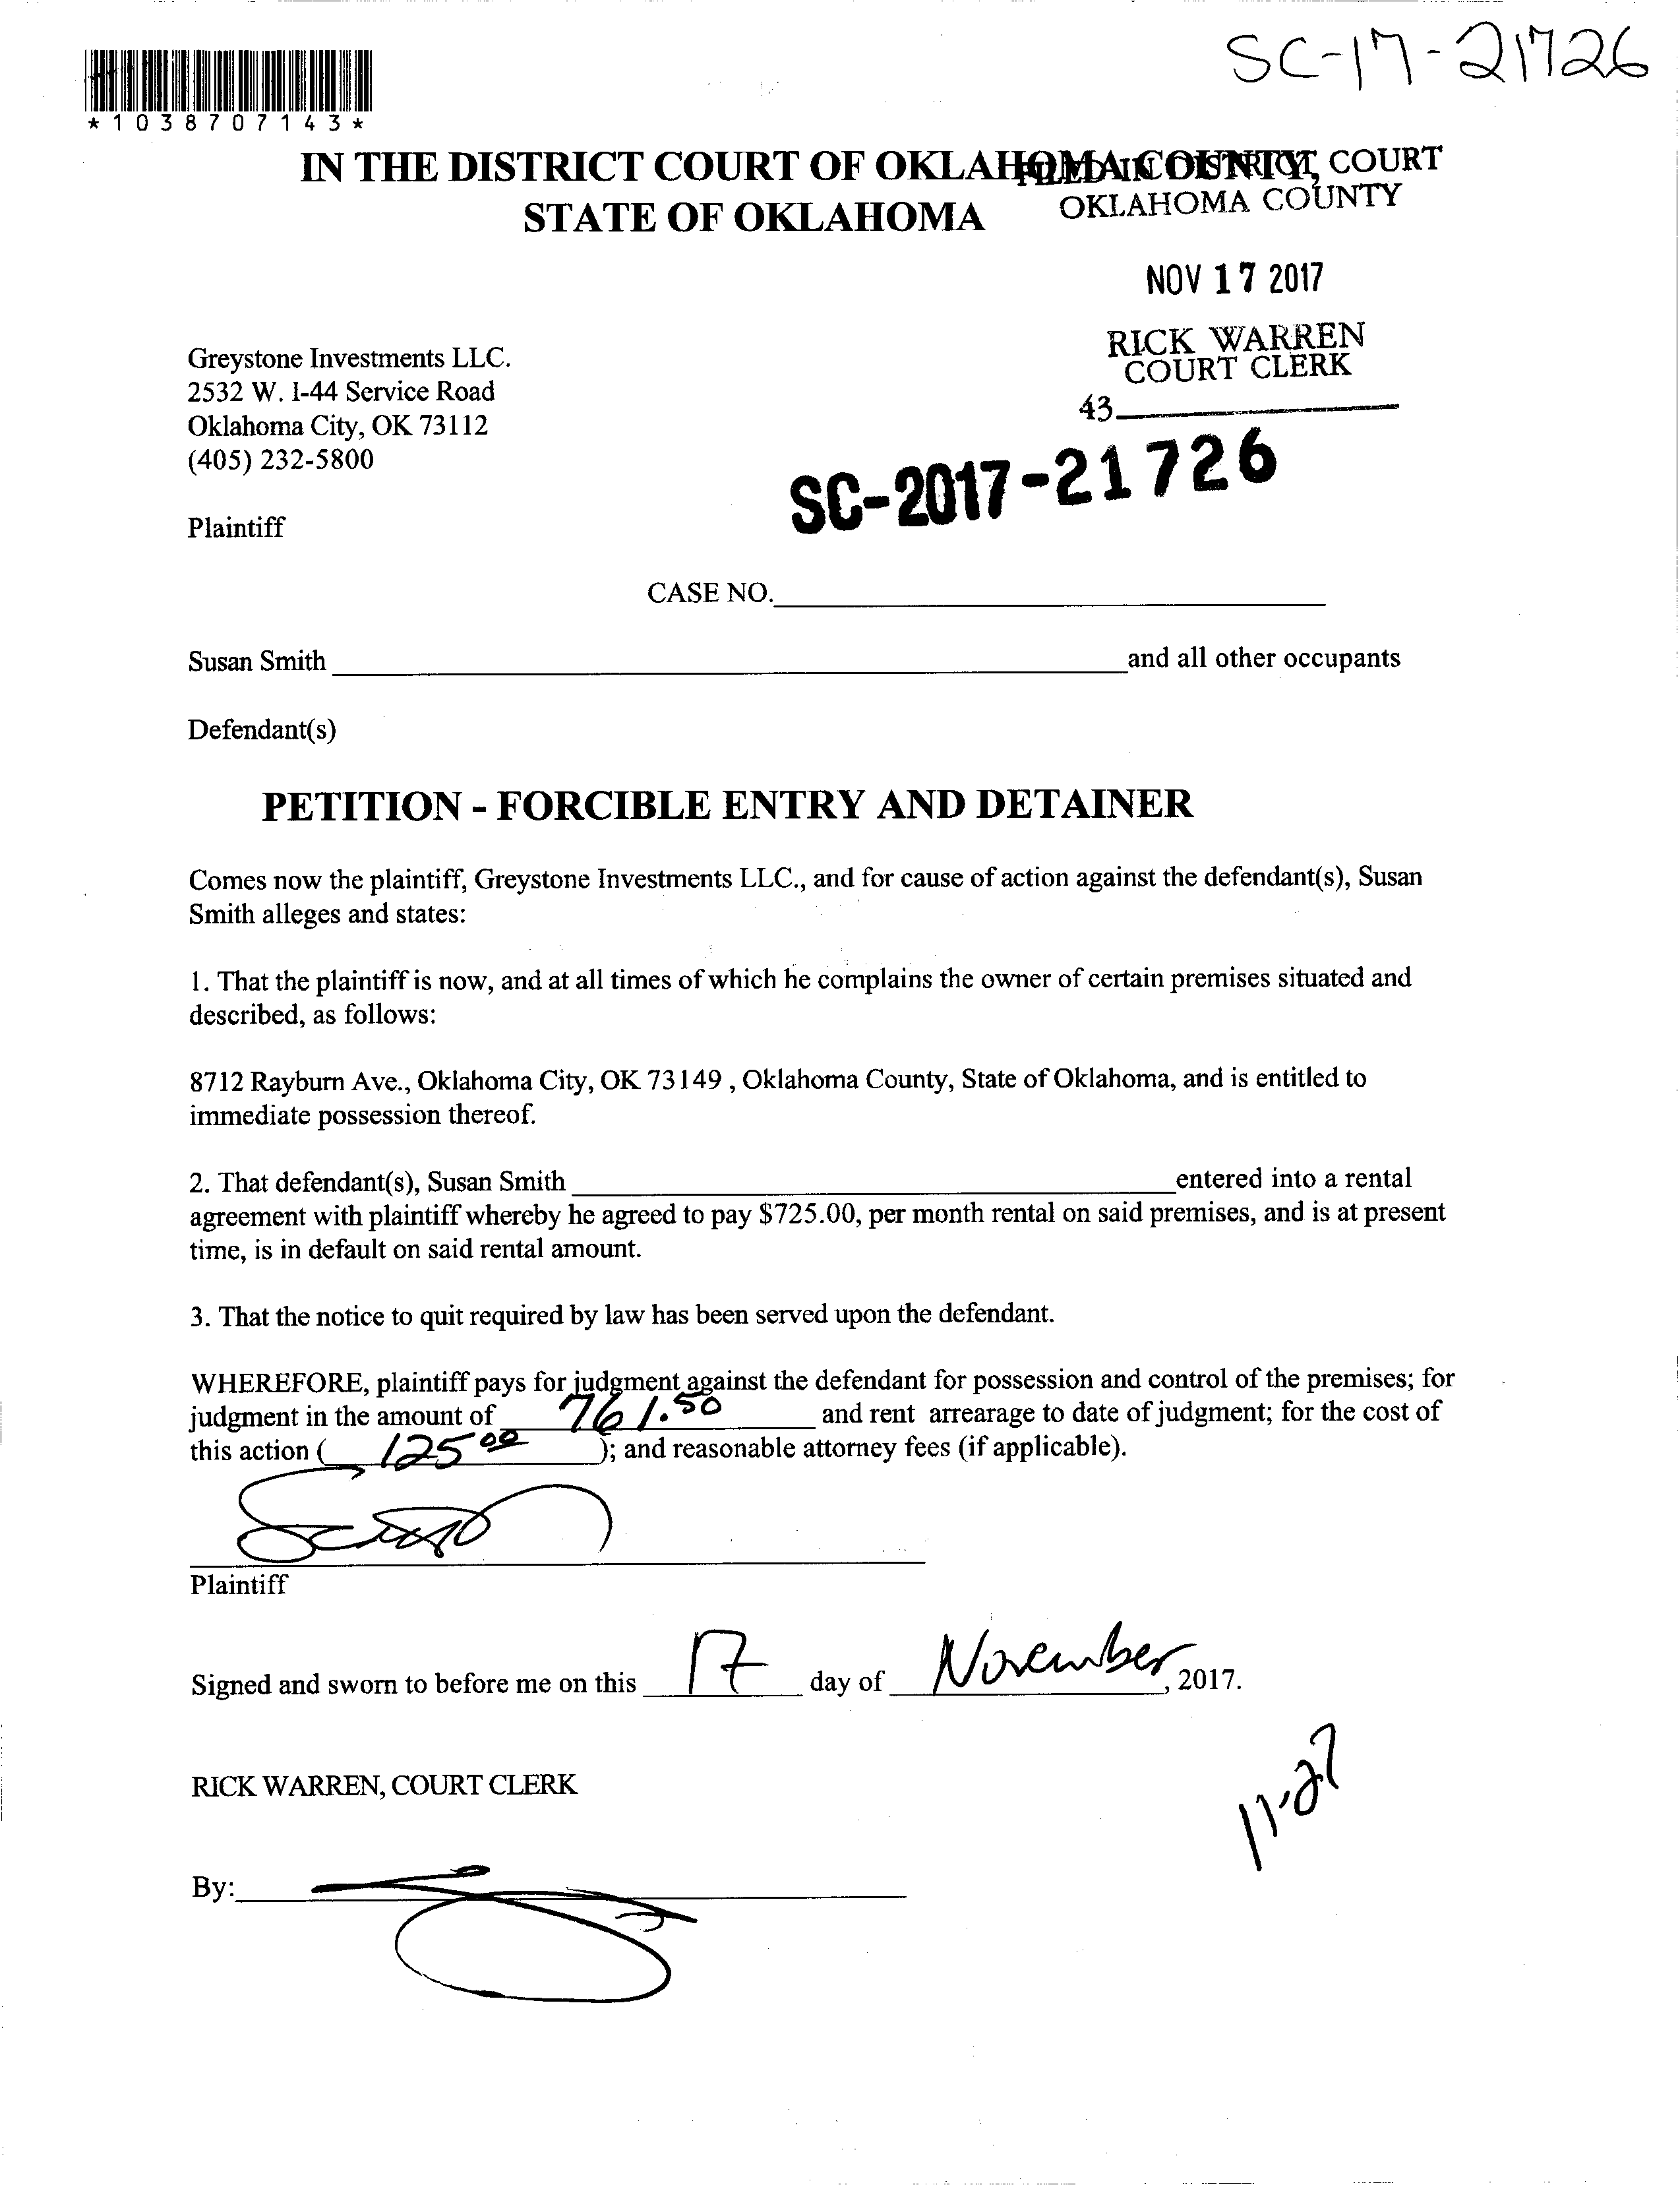 SC-17-21726
*1038707143*
IN THE DISTRICT COURT OF OKLAHOMA COUNTY,
STATE OF OKLAHOMA
FILED IN DISTRICT COURT
OKLAHOMA COUNTY
NOV 17 2017
RICK WARREN
COURT CLERK
43
Greystone Investments LLC.
2532 W. I-44 Service Road
Oklahoma City, OK 73112
(405) 232-5800
SC-2017-21726
Plaintiff
CASE NO.
Susan Smith and all other occupants
Defendant(s)
PETITION - FORCIBLE ENTRY AND DETAINER
Comes now the plaintiff, Greystone Investments LLC., and for cause of action against the defendant(s), Susan
Smith alleges and states:
1. That the plaintiff is now, and at all times of which he complains the owner of certain premises situated and
described, as follows:
8712 Rayburn Ave., Oklahoma City, OK 73149 , Oklahoma County, State of Oklahoma, and is entitled to
immediate possession thereof.
2. That defendant(s), Susan Smith entered into a rental
agreement with plaintiff whereby he agreed to pay $725.00, per month rental on said premises, and is at present
time, is in default on said rental amount.
3. That the notice to quit required by law has been served upon the defendant.
WHEREFORE, plaintiff pays for judgment against the defendant for possession and control of the premises; for
judgment in the amount of 761.50 and rent arrearage to date of judgment; for the cost of
this action ( 125 00 ); and reasonable attorney fees (if applicable).
Plaintiff
Signed and sworn to before me on this 17 day of November, 2017.
11-27
RICK WARREN, COURT CLERK
By: